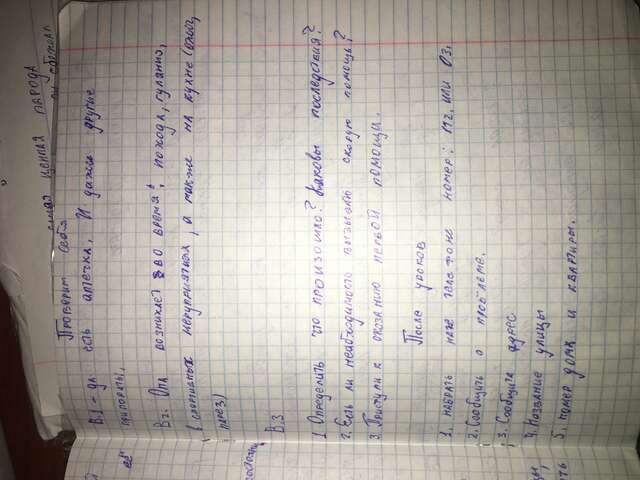 самая ценная порода
Проверим себя
В.1 – да есть аптечка, И даже другие
припораты,
В2. Она возникает во время: похода, гуляния,
в спотивных мероприятиях, а также на кухне (ожог,
парез)
В.3
1. Определить что произошло? Каковы последствия?
2. Есть ли необходимость вызывать скорую помощь?
3. Приступи к оказанию первой помощи.
После уроков
1. набрать на телефоне номер: 112, или 03.
2. Сообщить о проблеме.
3. Сообщить адрес:
4. Название улицы
5. номер дома и квартиры.